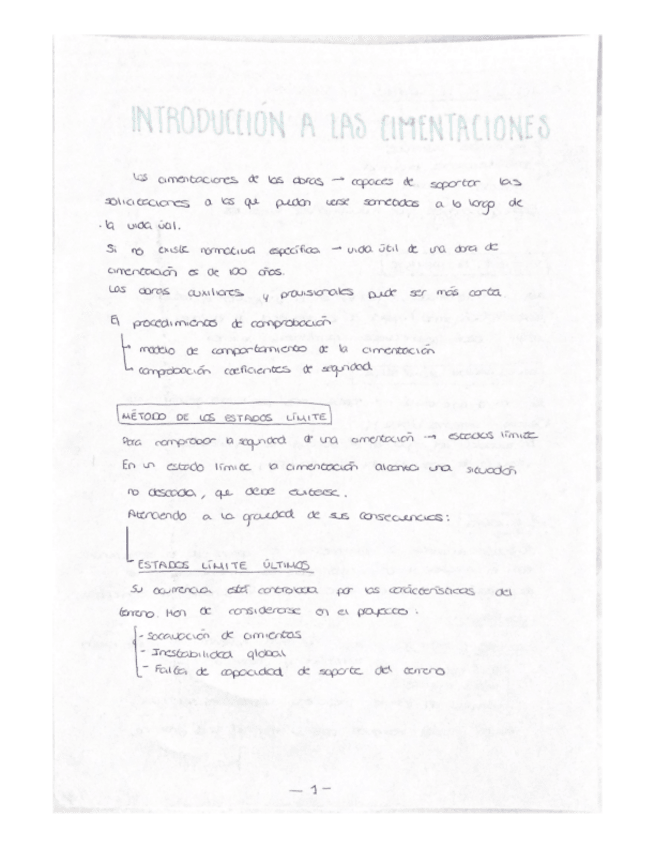 INTRODUCCIÓN A LAS CIMENTACIONES
Las cimentaciones de las obras → capaces de soportar las
solicitaciones a las que puedan verse sometidas a lo largo de
la vida útil.
Si no existe normativa específica → vida útil de una obra de
cimentación es de 100 años.
Las obras auxiliares y provisionales puede ser más corta.
El procedimientos de comprobación
modelo de comportamiento de la cimentación
comprobación coeficientes de seguridad
MÉTODO DE LOS ESTADOS LÍMITE
Para comprobar la seguridad d una cimentación → estados límite
En un estado límite la cimentación alcanza una situación
no deseada, que debe evitarse.
Atendiendo a la gravedad de sus consecuencias:
ESTADOS LÍMITE ÚLTIMOS
Su ocurrencia está controlada por las características del
terreno. Han de considerarse en el proyecto:
- Socavación de cimientos
- Inestabilidad global
- Falta de capacidad de soporte del terreno
— 1 —